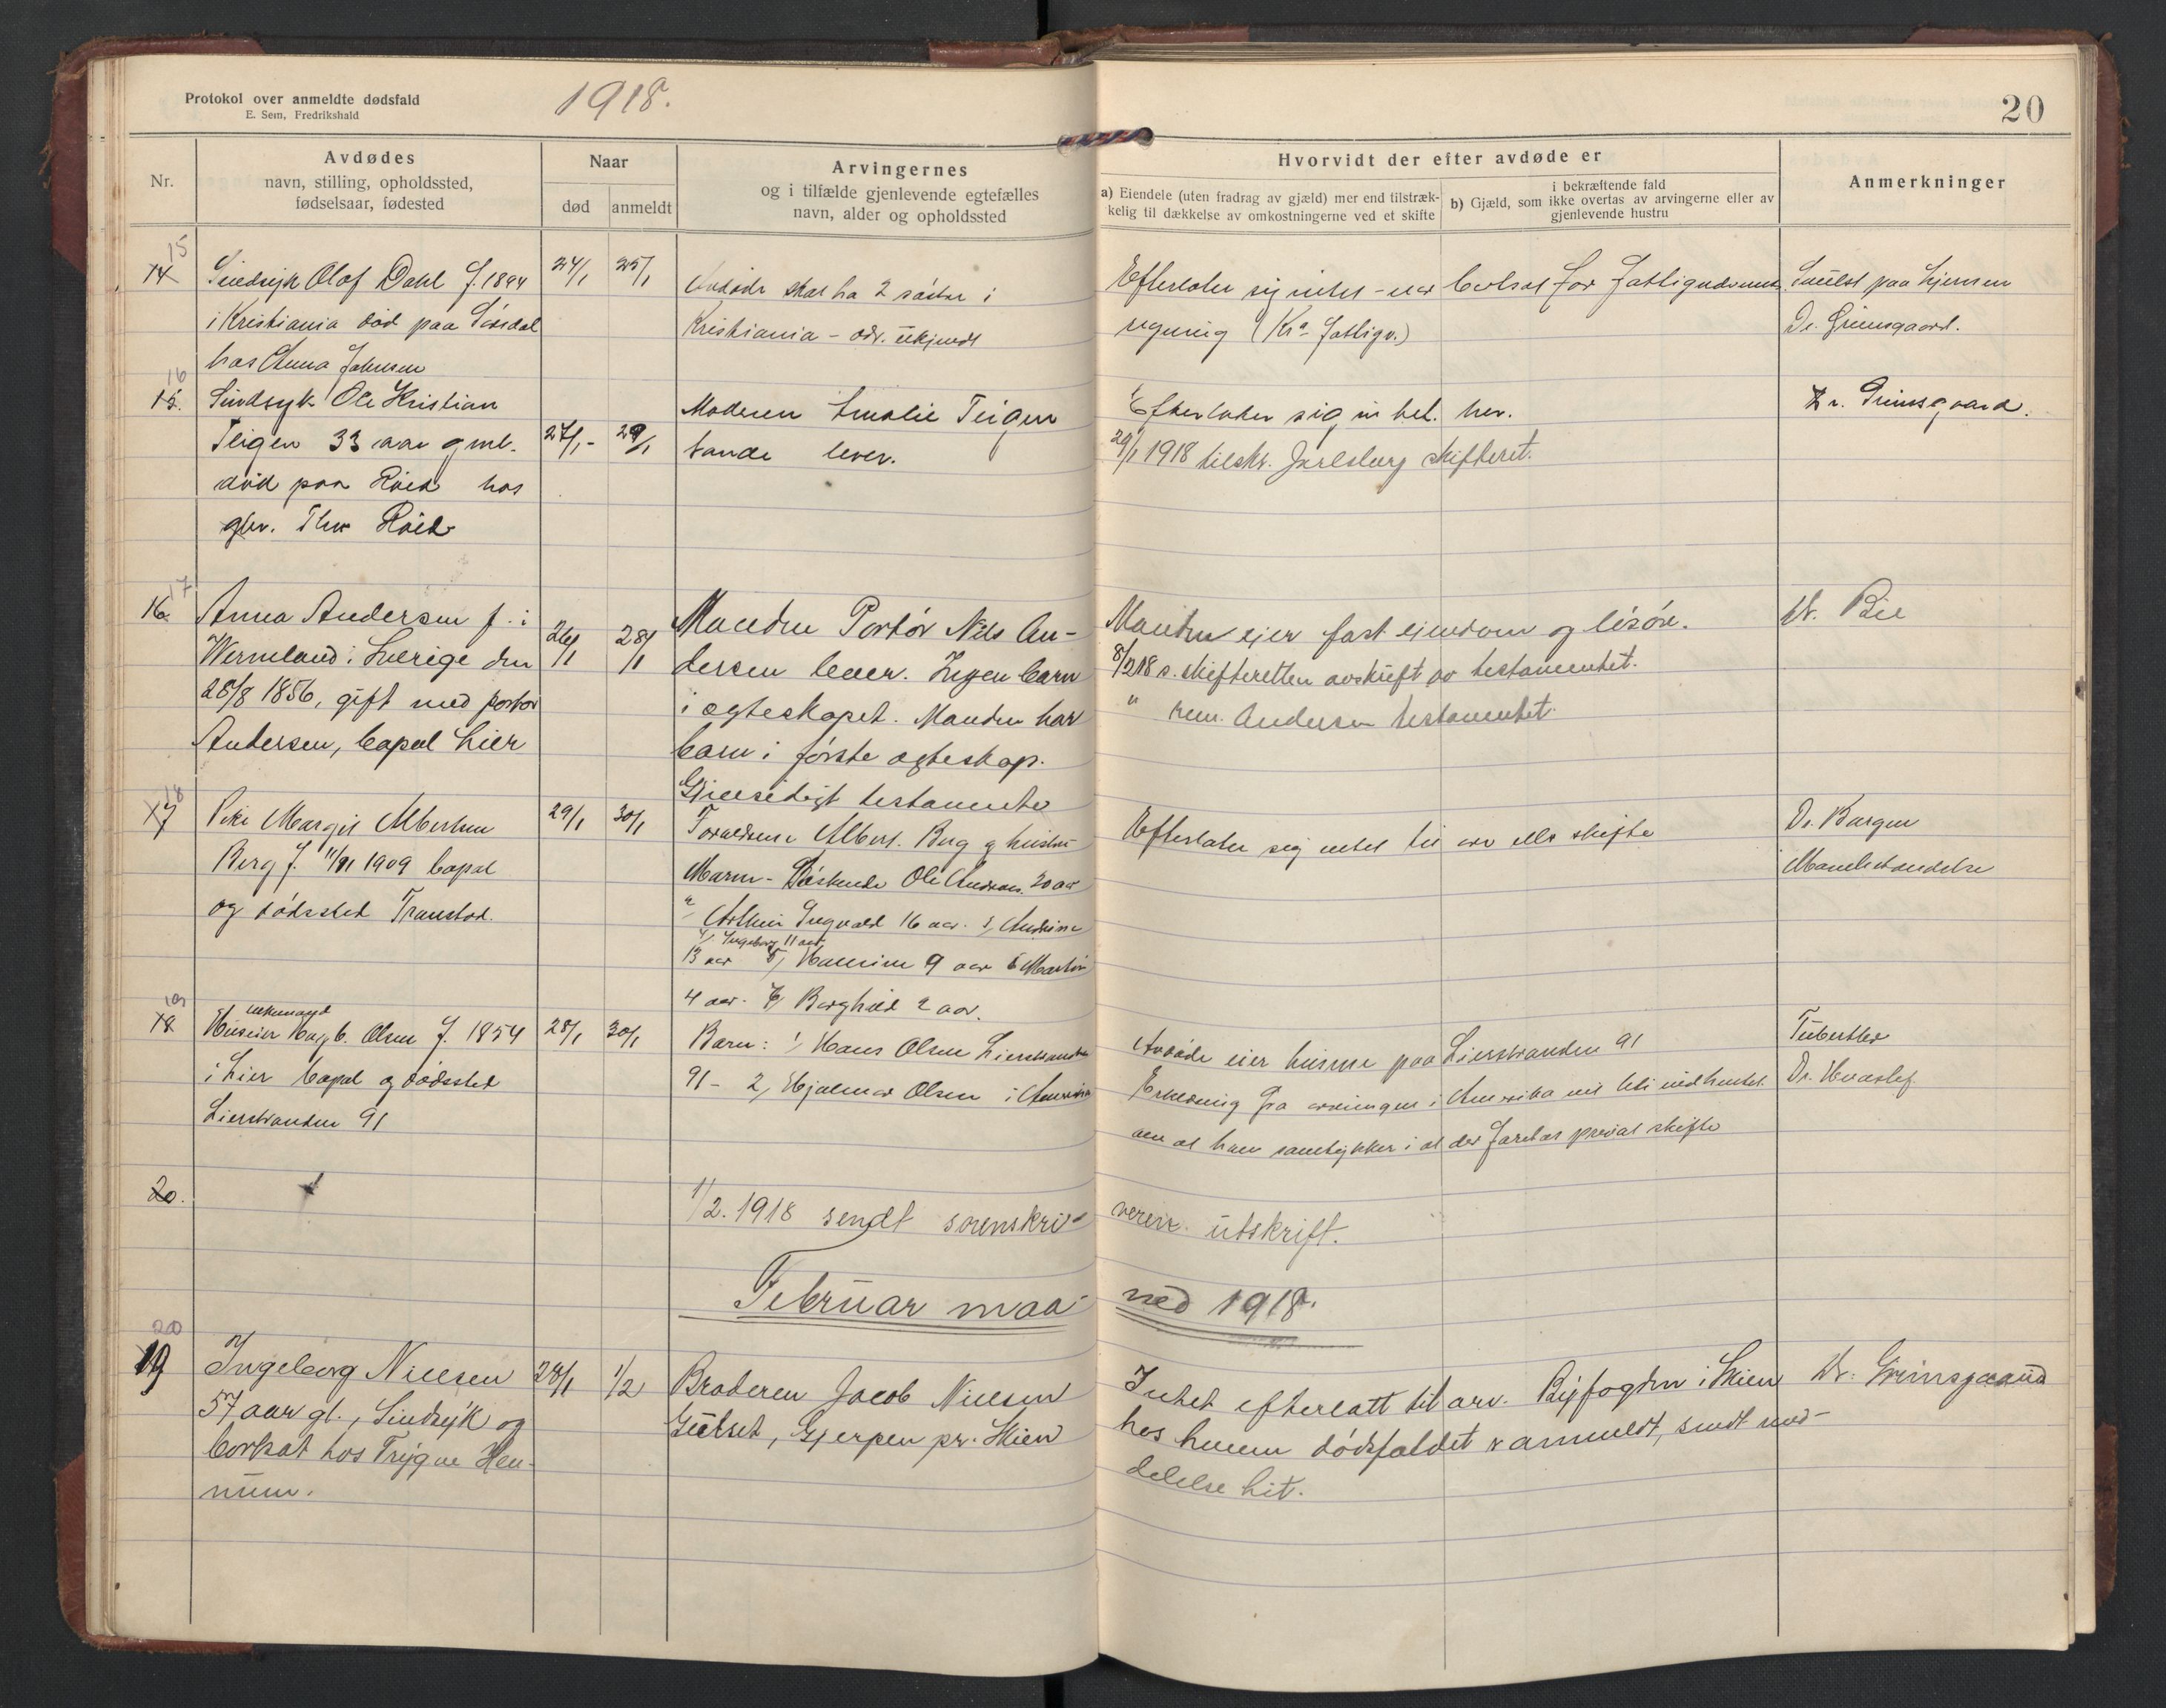 Protokol over anmeldte dødsfald
E. Sem, Fredrikshald
1918.
20
Nr.
Avdødes
navn, stilling, opholdssted,
fødselsaar, fødested
Naar
død
anmeldt
Arvingernes
og i tilfælde gjenlevende egtefælles
navn, alder og opholdssted
Hvorvidt der efter avdøde er
a) Eiendele (uten fradrag av gjæld) mer end tilstræk-
kelig til dækkelse av omkostningerne ved et skifte
i bekræftende fald
b) Gjæld, som ikke overtas av arvingerne eller av
gjenlevende hustru
Anmerkninger
15
14
Sindsyk Olaf Dahl f. 1894
i Kristiania død paa
hos Anna Johnsen
24/1
25/1
Avdøde skal ha 2 søstre i
Kristiania - adr. ukjendt
Efterlater sig intet - var bortsat for
regning (Kra fattigv.)
Dr. Grimsgaard.
16
15.
Sindsyk Ole Kristian
Teigen 33 aar gml.
død paa Røed hos
gbr. Thv Røed
27/1 -
29/1
Moderen Emalie Teigen
Sande lever.
Efterlater sig intet her.
29/1 1918 tilskr. Jarlsberg skifteret.
Dr. Grimsgaard.
17
16
Anna Andersen f. i
Wermland i Sverige den
28/8 1856, gift med portør
Andersen, bopæl Lier
26/1
28/1
Manden Portør Nils An-
dersen lever. Ingen barn
i egteskapet. Manden har
barn i første egteskap.
Gjensidigt testamente
Manden ejer fast ejendom og løsøre.
8/2 18 s. skifteretten avskrift av testamentet.
" rem. Andersen testamentet.
Dr. Bie
18
17
Pike Margit Albertsen
Berg f. 1909 bopæl
og dødssted Transtad.
29/1
30/1
Forældrene Albert Berg og hustru
Maren - Søskende Ole Andreas 20 aar
2/ Arthur Ingvald 16 aar. 3/ Andrine
4/ Ingeborg 11 aar
13 aar 5/ 9 aar 6 Martin
4 aar. 7/ Borghild 2 aar.
Efterlater sig intet til arv eller skifte
Dr. Borgen
19
18
enkemand
Huseier b. Olsen f. 1854
i Lier bopæl og dødssted
Lierstranden 91
28/1
30/1
Barn: 1/ Hans Olsen Lierstranden
91 - 2/ Hjalmar Olsen i Amerika
Avdøde eier husene paa Lierstranden 91
Erklæring fra arvingen i Amerika vil bli indhentet
om at han samtykker i at der foretas privat skifte
Dr. Hvoslef.
20.
1/2. 1918 sendt sorenskri-
veren utskrift.
Februar maa-
ned 1918.
20
19
Ingeborg Nielsen
57 aar gl., Sindsyk og
bortsat hos Trygve Hen-
num.
28/1
1/2
Broderen Jacob Nielsen
Gulset, Gjerpen pr. Skien
Intet efterlatt til arv. Byfogden i Skien
hos hvem dødsfaldet er anmeldt, sendt med-
delelse hit.
Dr. Grimsgaard